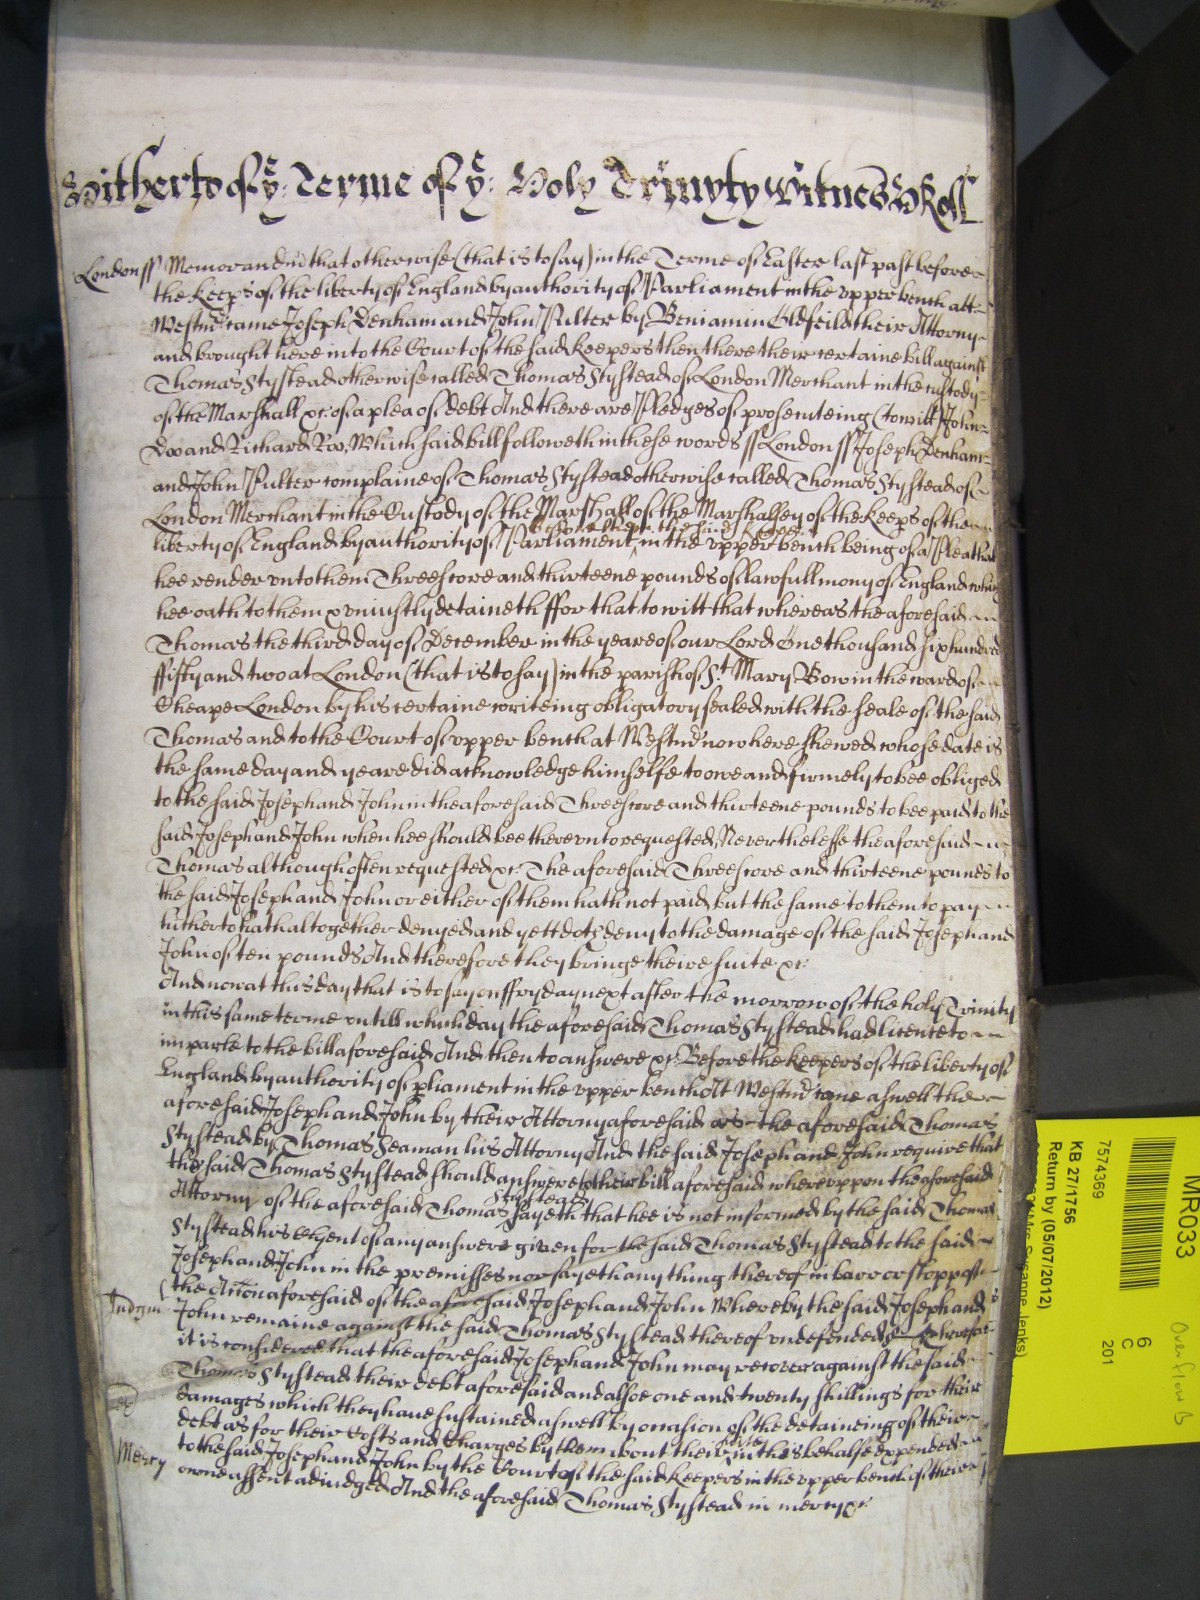 Hitherto of ye: Terme of ye: Holy Trinyty Witnes ye Roll
London ss Memorandum that otherwise (that is to say) in the Terme of Easter last past before
the keeps of the liberty of England by authority of Parliament in the upper bench att
Westmr came Joseph Denham and John Pulter by Beniamin Oldfeild their Attorny
and brought here into the Court of the said keepers then there their certaine bill against
Thomas Stystead otherwise called Thomas Stystead of London Merchant in the custody
of the Marshall &c: of a plea of debt And there are Pledges of prosecuteing (to witt) John
Doo and Richard Roo, Which said bill followeth in these words ss London ss Joseph Denham
and John Pulter complaine of Thomas Stystead otherwise called Thomas Stystead of
London Merchant in the Custody of the Marshall of the Marshalsey of the keeps of the
before the said keeps
liberty of England by authority of Parliament in the upper bench being of a Plea that
hee render unto them Threescore and thirteene pounds of lawfull mony of England which
hee oath to them & uniustly detaineth ffor that to witt that whereas the aforesaid
Thomas the third day of December in the yeare of our Lord One thousand six hundred
ffifty and two at London (that is to say) in the parish of St. Mary Bow in the ward of
Cheape London by his certaine writeing obligatory sealed with the seale of the said
Thomas and to the Court of upper bench at Westmr now here shewed whose date is
the same day and yeare did acknowledge himselfe to owe and firmely to bee obliged
to the said Joseph and John in the aforesaid Threescore and thirteene pounds to bee paid to the
said Joseph and John when hee should bee thereunto requested, Neverthelesse the aforesaid
Thomas although often requested &c: The aforesaid Threescore and thirteene pounds to
the said Joseph and John or either of them hath not paid but the same to them to pay
hitherto hath altogether denyed and yett doth deny to the damage of the said Joseph and
John of ten pounds And therefore they bringe theire suite &c:
And now at this day that is to say on ffryday next after the morrow of the holy Trinity
in this same terme untill which day the aforesaid Thomas Stystead had licence to
imparle to the bill aforesaid And then to answere &c: Before the keepers of the liberty of
England by authority of pliament in the upper bench At Westmr came aswell the
aforesaid Joseph and John by their Attorny aforesaid as the aforesaid Thomas
Stystead by Thomas Seaman his Attorny And the said Joseph and John require that
the said Thomas Stystead should answere to their bill aforesaid whereuppon the aforesaid
Stystead
Attorny of the aforesaid Thomas sayeth that hee is not informed by the said Thomas
Stystead his Clyent of any answere given for the said Thomas Stystead to the said
Joseph and John in the premisses nor sayeth any thing thereof in barr or stopp of
the Action aforesaid of the aforesaid Joseph and John Whereby the said Joseph and
Judgmt John remaine against the said Thomas Stystead thereof undefended &c Therefore
it is considered that the aforesaid Joseph and John may recover against the said
Thomas Stystead their debt aforesaid and alsoe one and twenty shillings for their
damages which they have sustained aswell by occasion of the detaineing of their
suite
debt as for their Costs and Charges by them about their in this behalfe expended
to the said Joseph and John by the Court of the said keepers in the upper bench of their
Mercy owne assent adiudged And the aforesaid Thomas Stystead in mercy &c
MR033
7574369
KB 27/1756
Return by (05/07/2012)
6
C
201
Overflow B